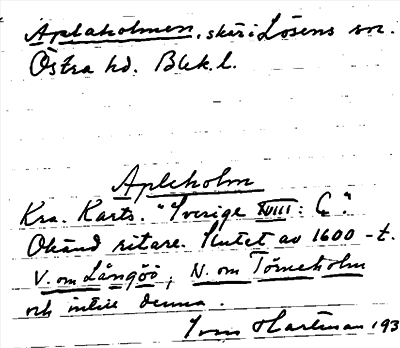 Aplaholmen, skär i Lösens sn.
Östra hd. Blek. l.
Apleholm
Kra. Karts. "Sverige XVIII: C."
Okänd ritare. Slutet av 1600-t.
V. om Långöö, N. om Törneholm
och intill denna.
Sven Hartman 193